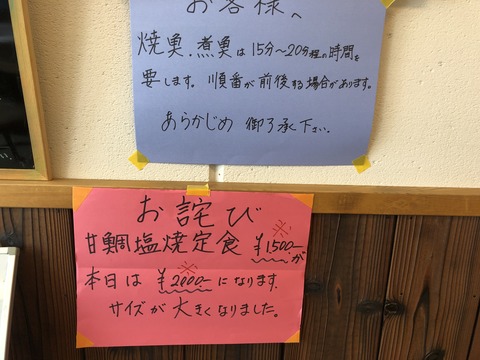 お客様へ
焼魚.煮魚は15分〜20分程の時間を
要します。順番が前後する場合があります。
あらかじめ御了承下さい。
お詫び
甘鯛塩焼定食 ※¥1,500-が
本日は※¥2000-になります。
サイズが大きくなりました。